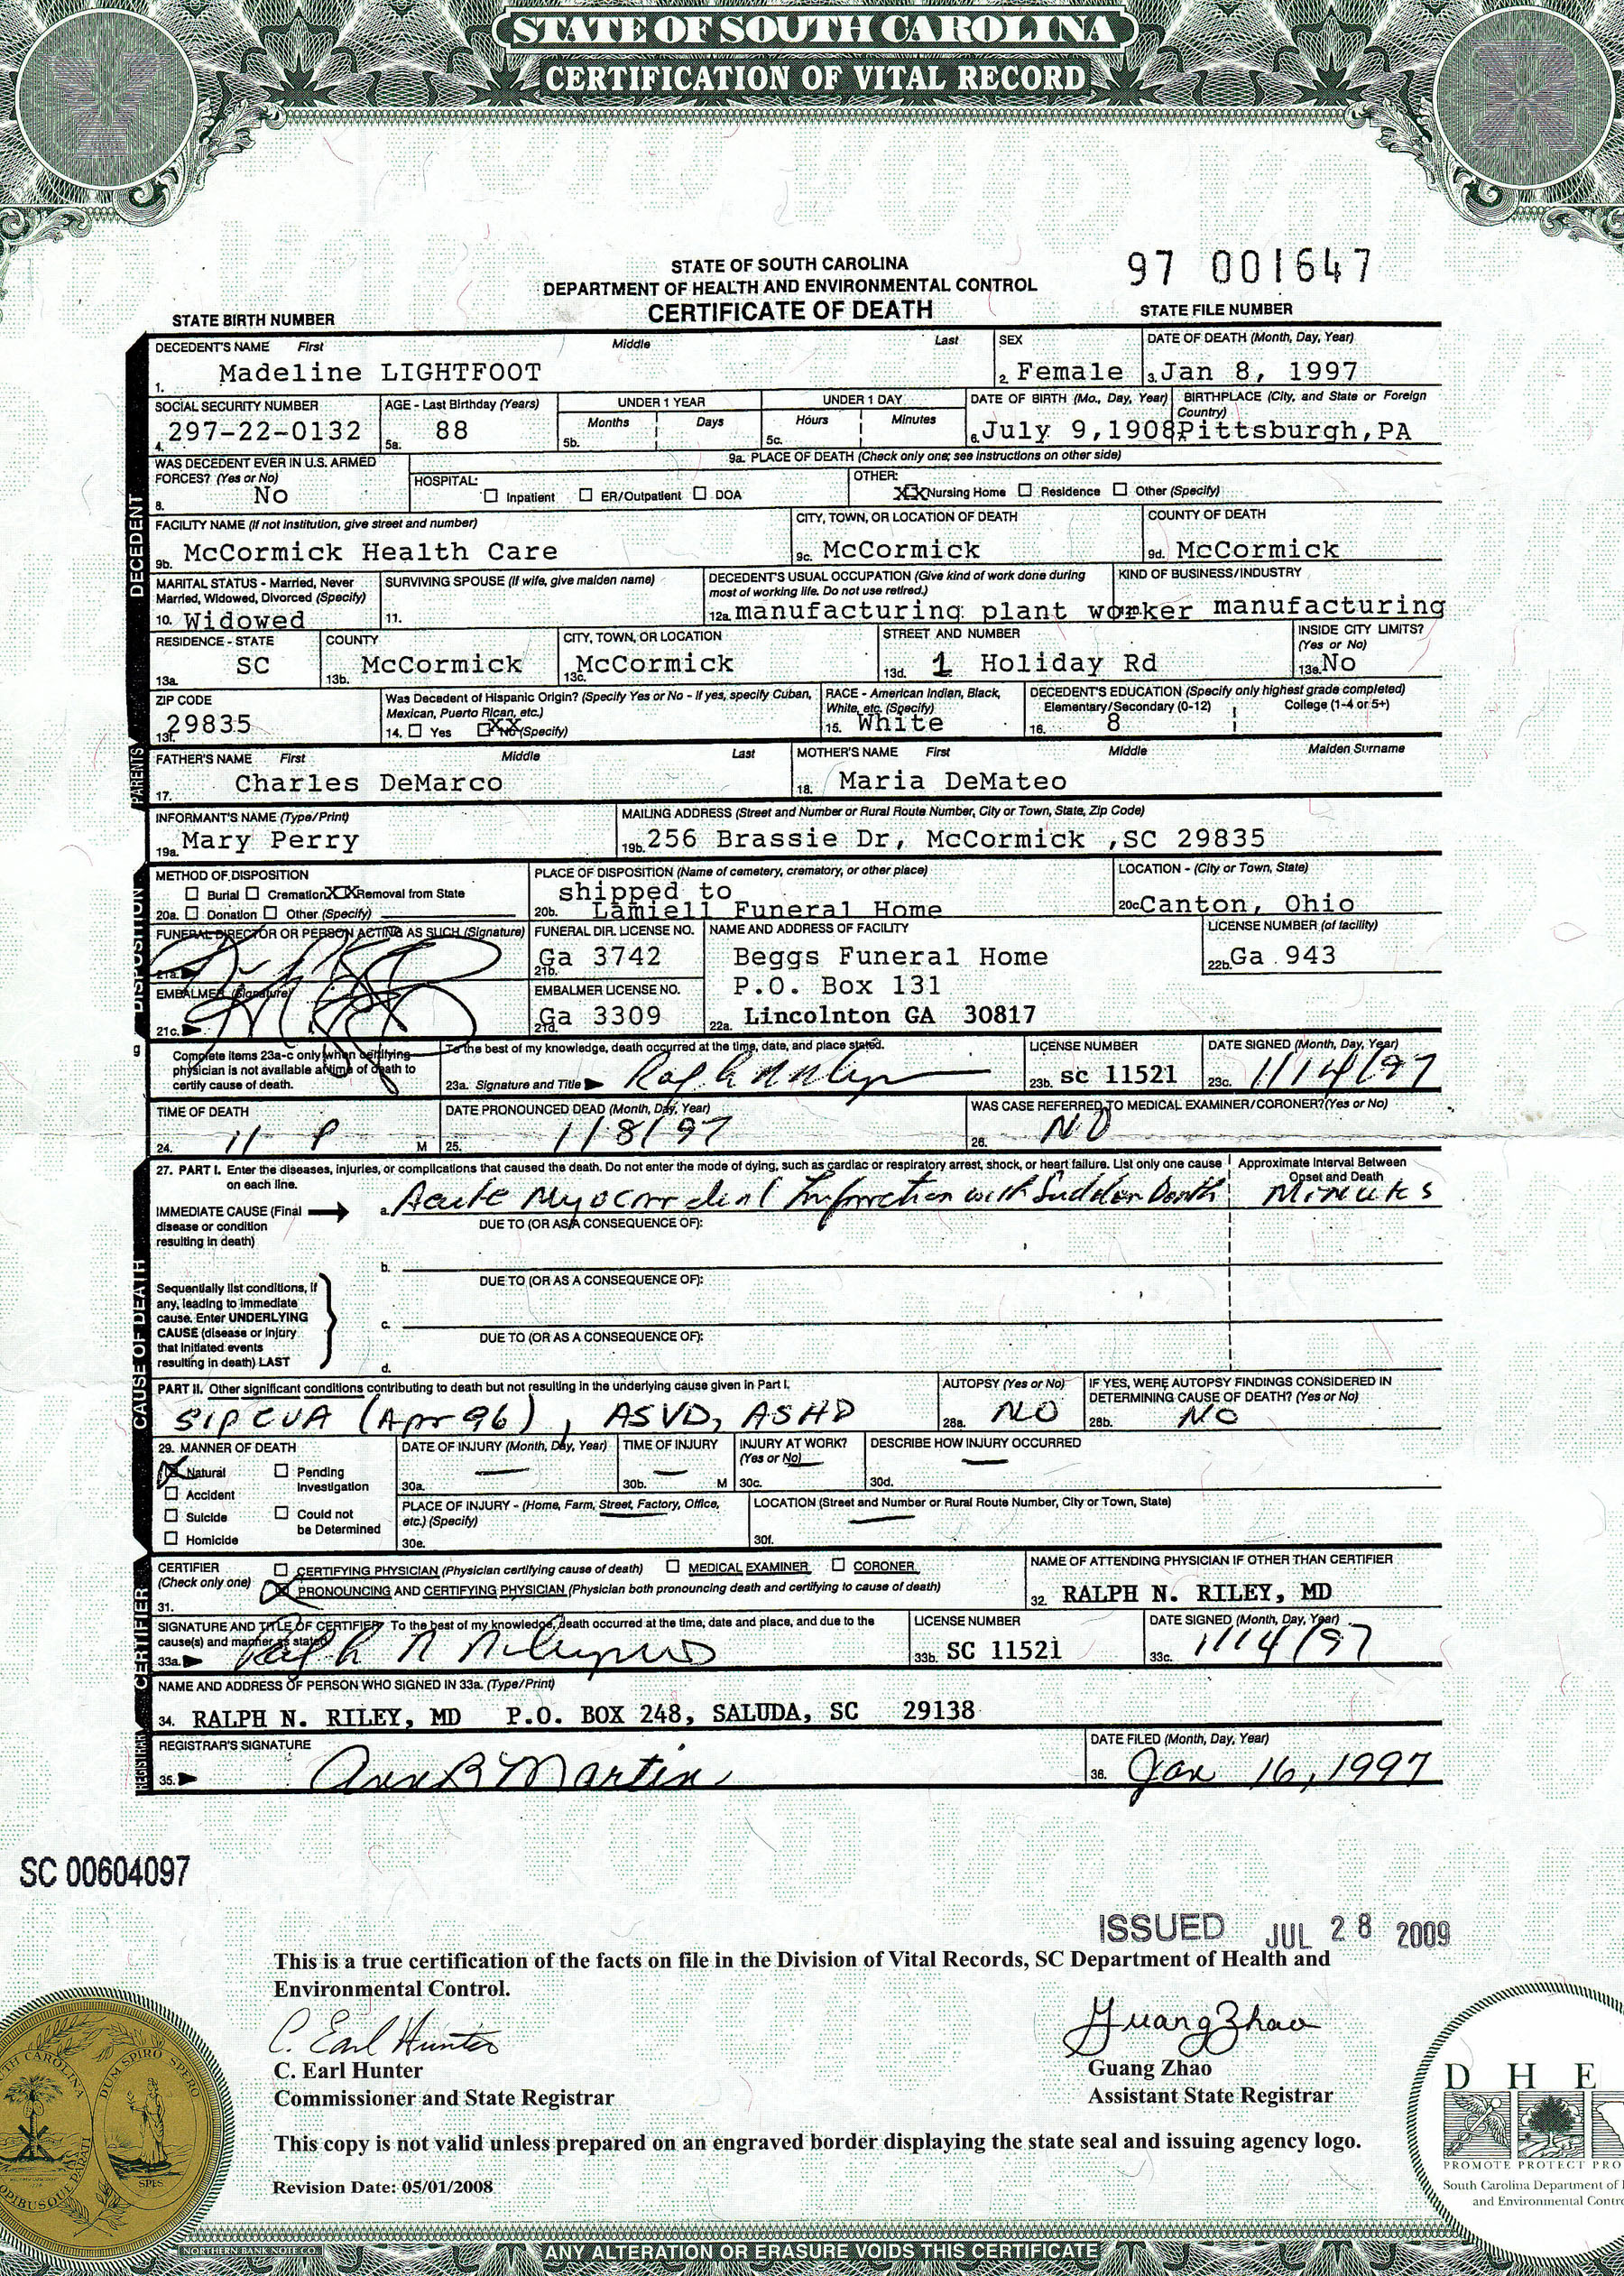 STATE OF SOUTH CAROLINA
CERTIFICATION OF VITAL RECORD
STATE OF SOUTH CAROLINA
DEPARTMENT OF HEALTH AND ENVIRONMENTAL CONTROL
CERTIFICATE OF DEATH
97 001647
STATE BIRTH NUMBER
STATE FILE NUMBER
DECEDENT
DECEDENT'S NAME First Middle Last
1. Madeline LIGHTFOOT
SEX
2. Female
DATE OF DEATH (Month, Day, Year)
3. Jan 8, 1997
SOCIAL SECURITY NUMBER
4. 297-22-0132
AGE - Last Birthday (Years)
5a. 88
UNDER 1 YEAR
Months Days
5b.
UNDER 1 DAY
Hours Minutes
5c.
DATE OF BIRTH (Mo., Day, Year)
6. July 9,1908
BIRTHPLACE (City, and State or Foreign Country)
Pittsburgh,PA
WAS DECEDENT EVER IN U.S. ARMED FORCES? (Yes or No)
8. No
9a. PLACE OF DEATH (Check only one; see instructions on other side)
HOSPITAL: Inpatient ER/Outpatient DOA
OTHER: XX Nursing Home Residence Other (Specify)
FACILITY NAME (If not institution, give street and number)
9b. McCormick Health Care
CITY, TOWN, OR LOCATION OF DEATH
9c. McCormick
COUNTY OF DEATH
9d. McCormick
MARITAL STATUS - Married, Never Married, Widowed, Divorced (Specify)
10. Widowed
SURVIVING SPOUSE (If wife, give maiden name)
11.
DECEDENT'S USUAL OCCUPATION (Give kind of work done during most of working life. Do not use retired.)
12a. manufacturing plant worker
KIND OF BUSINESS/INDUSTRY
manufacturing
RESIDENCE - STATE
13a. SC
COUNTY
13b. McCormick
CITY, TOWN, OR LOCATION
13c. McCormick
STREET AND NUMBER
13d. 1 Holiday Rd
INSIDE CITY LIMITS? (Yes or No)
13e. No
ZIP CODE
13f. 29835
Was Decedent of Hispanic Origin? (Specify Yes or No - If yes, specify Cuban, Mexican, Puerto Rican, etc.)
14. Yes XX No (Specify)
RACE - American Indian, Black, White, etc. (Specify)
15. White
DECEDENT'S EDUCATION (Specify only highest grade completed)
Elementary/Secondary (0-12) College (1-4 or 5+)
16. 8
PARENTS
FATHER'S NAME First Middle Last
17. Charles DeMarco
MOTHER'S NAME First Middle Maiden Surname
18. Maria DeMateo
INFORMANT'S NAME (Type/Print)
19a. Mary Perry
MAILING ADDRESS (Street and Number or Rural Route Number, City or Town, State, Zip Code)
19b. 256 Brassie Dr, McCormick ,SC 29835
DISPOSITION
METHOD OF DISPOSITION
Burial Cremation XX Removal from State
20a. Donation Other (Specify)
PLACE OF DISPOSITION (Name of cemetery, crematory, or other place)
shipped to
20b. Lamiell Funeral Home
LOCATION - (City or Town, State)
20c Canton, Ohio
FUNERAL DIRECTOR OR PERSON ACTING AS SUCH (Signature)
21a.
FUNERAL DIR. LICENSE NO.
21b. Ga 3742
NAME AND ADDRESS OF FACILITY
Beggs Funeral Home
P.O. Box 131
22a. Lincolnton GA 30817
LICENSE NUMBER (of facility)
22b. Ga 943
EMBALMER (Signature)
21c.
EMBALMER LICENSE NO.
21d. Ga 3309
Complete items 23a-c only when certifying physician is not available at time of death to certify cause of death.
To the best of my knowledge, death occurred at the time, date, and place stated.
23a. Signature and Title
LICENSE NUMBER
23b. sc 11521
DATE SIGNED (Month, Day, Year)
23c. 1/14/97
TIME OF DEATH
24. 11 P M
DATE PRONOUNCED DEAD (Month, Day, Year)
25. 1/8/97
WAS CASE REFERRED TO MEDICAL EXAMINER/CORONER? (Yes or No)
26. NO
CAUSE OF DEATH
27. PART I. Enter the diseases, injuries, or complications that caused the death. Do not enter the mode of dying, such as cardiac or respiratory arrest, shock, or heart failure. List only one cause on each line.
Approximate Interval Between Onset and Death
IMMEDIATE CAUSE (Final disease or condition resulting in death)
a. Acute Myocardial Infarction with Sudden Death Minutes
DUE TO (OR AS A CONSEQUENCE OF):
b.
DUE TO (OR AS A CONSEQUENCE OF):
Sequentially list conditions, if any, leading to immediate cause. Enter UNDERLYING CAUSE (disease or injury that initiated events resulting in death) LAST
c.
DUE TO (OR AS A CONSEQUENCE OF):
d.
PART II. Other significant conditions contributing to death but not resulting in the underlying cause given in Part I.
S/P CVA (Apr 96), ASVD, ASHD
AUTOPSY (Yes or No)
28a. NO
IF YES, WERE AUTOPSY FINDINGS CONSIDERED IN DETERMINING CAUSE OF DEATH? (Yes or No)
28b. NO
29. MANNER OF DEATH
Natural Pending Investigation
Accident
Suicide Could not be Determined
Homicide
DATE OF INJURY (Month, Day, Year)
30a. —
TIME OF INJURY
30b. — M
INJURY AT WORK? (Yes or No)
30c. —
DESCRIBE HOW INJURY OCCURRED
30d. —
PLACE OF INJURY - (Home, Farm, Street, Factory, Office, etc.) (Specify)
30e. —
LOCATION (Street and Number or Rural Route Number, City or Town, State)
30f. —
CERTIFIER
CERTIFIER (Check only one)
31.
CERTIFYING PHYSICIAN (Physician certifying cause of death) MEDICAL EXAMINER CORONER
PRONOUNCING AND CERTIFYING PHYSICIAN (Physician both pronouncing death and certifying to cause of death)
NAME OF ATTENDING PHYSICIAN IF OTHER THAN CERTIFIER
32. RALPH N. RILEY, MD
SIGNATURE AND TITLE OF CERTIFIER To the best of my knowledge, death occurred at the time, date and place, and due to the cause(s) and manner as stated
33a. Ralph N Riley MD
LICENSE NUMBER
33b. SC 11521
DATE SIGNED (Month, Day, Year)
33c. 1/14/97
NAME AND ADDRESS OF PERSON WHO SIGNED IN 33a. (Type/Print)
34. RALPH N. RILEY, MD P.O. BOX 248, SALUDA, SC 29138
REGISTRAR
REGISTRAR'S SIGNATURE
35. Ann B Martin
DATE FILED (Month, Day, Year)
36. Jan 16, 1997
SC 00604097
ISSUED JUL 28 2009
This is a true certification of the facts on file in the Division of Vital Records, SC Department of Health and
Environmental Control.
C. Earl Hunter
Guang Zhao
C. Earl Hunter
Guang Zhao
Commissioner and State Registrar
Assistant State Registrar
This copy is not valid unless prepared on an engraved border displaying the state seal and issuing agency logo.
Revision Date: 05/01/2008
TH CAROLINA
DUM SPIRO SPERO
SPES
D H E
PROMOTE PROTECT PRO
South Carolina Department of
and Environmental Contr
NORTHERN BANK NOTE CO.
ANY ALTERATION OR ERASURE VOIDS THIS CERTIFICATE